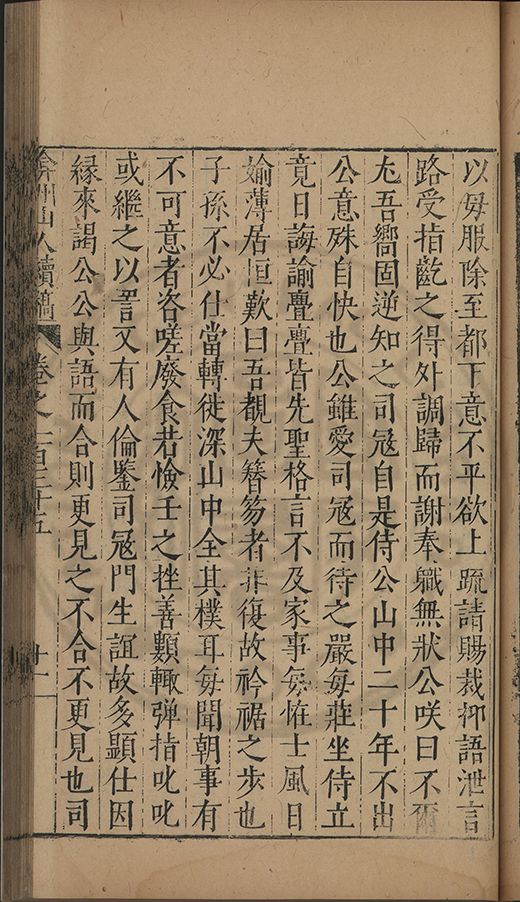 以毋服除至都下意不平欲上疏請賜裁抑語泄言
路受指齕之得外調歸而謝奉職無狀公咲曰不爾
尤吾嚮固逆知之司宼自是侍公山中二十年不出
公意殊自快也公雖愛司宼而待之嚴毎莊坐侍立
竟日誨諭亹亹皆先聖格言不及家事毎恠士風日
媮薄居恒歎曰吾覩夫簪笏者非復故衿裾之步也
子孫不必仕當轉徙深山中全其樸耳毎聞朝事有
不可意者咨嗟廢食若憸壬之挫善類輙弹指叱叱
或繼之以詈又有人倫鑒司宼門生誼故多顯仕因
縁來謁公公與語而合則更見之不合不更見也司
弇州山人續稿 卷之一百三十五 廿一